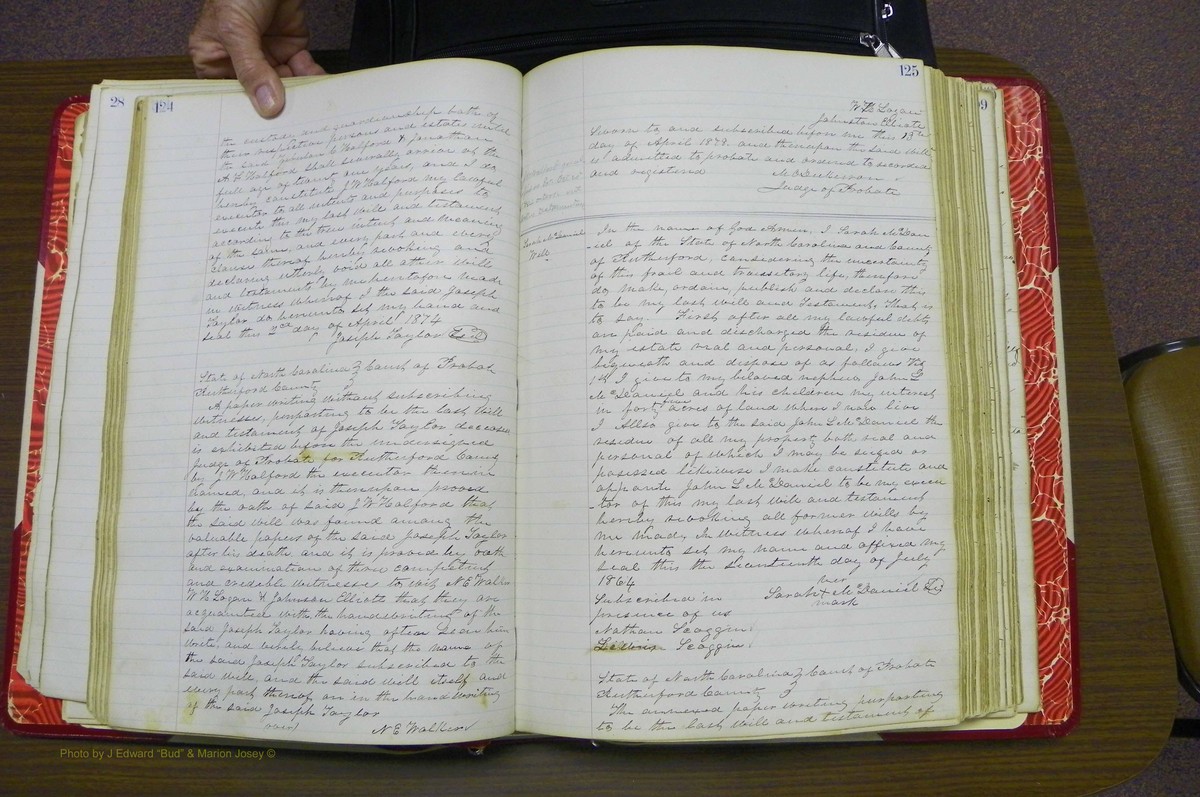 28
124
the custody and guardianship both of
their respective persons and estates until
the said
A. F. Halford shall severally arrive at the
full age of twenty one years, and I do
hereby constitute J W Halford my lawful
executor to all intents and purposes to
execute this my last will and testament
according to the true intent and meaning
of the same, and every part and every
clause thereof hereby revoking and
declaring utterly void all other wills
and testaments by me heretofore made
in witness whereof I the said Joseph
Taylor do hereunto set my hand and
seal this 2nd day of April 1874
Joseph Taylor
State of North Carolina } Court of Probate
Rutherford County }
A paper writing without subscribing
witnesses, purporting to be the last will
and testament of Joseph Taylor deceased
is exhibited before the undersigned
Judge of Probate for Rutherford County
by J W Halford the executor therein
named, and it is thereupon proved
by the oath of said J W Halford that
the said will was found among the
valuable papers of the said Joseph Taylor
after his death and it is proved by oath
and examination of three competent
and credible witnesses to wit N E Walker
W H Logan & Johnson Elliott that they are
acquainted with the handwriting of the
said Joseph Taylor having often seen him
write, and verily believe that the name of
the said Joseph Taylor subscribed to the
said will, and the said will itself and
every part thereof, are in the hand writing
of the said Joseph Taylor
over
N E Walker
125
W H Logan
Johnston
Sworn to and subscribed before me this 15th
day of April 1878 and thereupon the said will
is admitted to probate and ordered to recorded
and registered
Judge of Probate
Sarah McDaniel
Will
In the name of God Amen, I Sarah McDan
-iel of the State of North Carolina and County
of Rutherford, considering the uncertainty
of this frail and transitory life, therefore
do make, ordain, publish and declare this
to be my last will and Testament, That is
to say. First after all my lawful debts
are paid and discharged the residue of
my estate real and personal, I give
bequeath and dispose of as follows Viz
1st I give to my beloved nephew John L
McDaniel and his children my interest
in forty acres of land where I now live
I Allso give to the said John L McDaniel the
residue of all my property both real and
personal of which I may be seized or
posessed likewise I make constitute and
appoint John L McDaniel to be my execu
-tor of this my last will and testament
hereby revoking all former wills by
me made, In witness whereof I have
hereunto set my name and affixed my
seal this the seventeenth day of July
1864
her
Sarah X McDaniel
mark
Subscribed in
presence of us
Nathan Scoggin
Scoggin
State of North Carolina } Court of Probate
Rutherford County }
The annexed paper writing purporting
to be the last will and testament of
Photo by J Edward "Bud" & Marion Josey ©